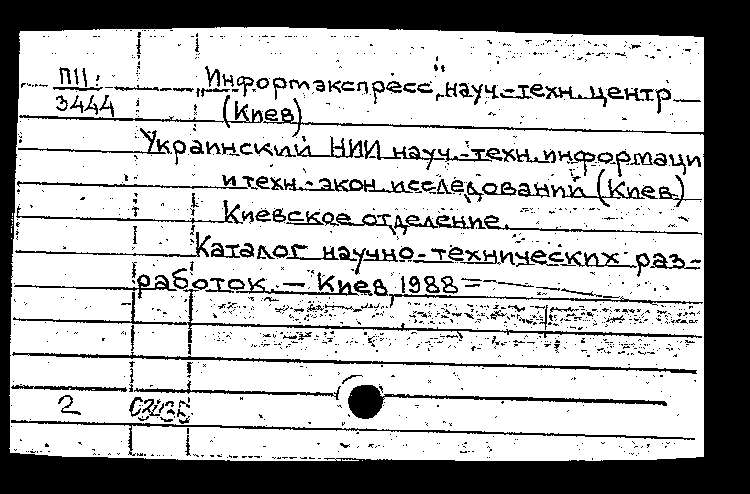 ПП:
3444
„Информэкспресс“, науч.-техн. центр
(Киев)
Украинский НИИ науч.-техн. информаци
и техн.-экон. исследований (Киев)
Киевское отделение.
Каталог научно-технических раз-
работок. — Киев, 1988 —
2